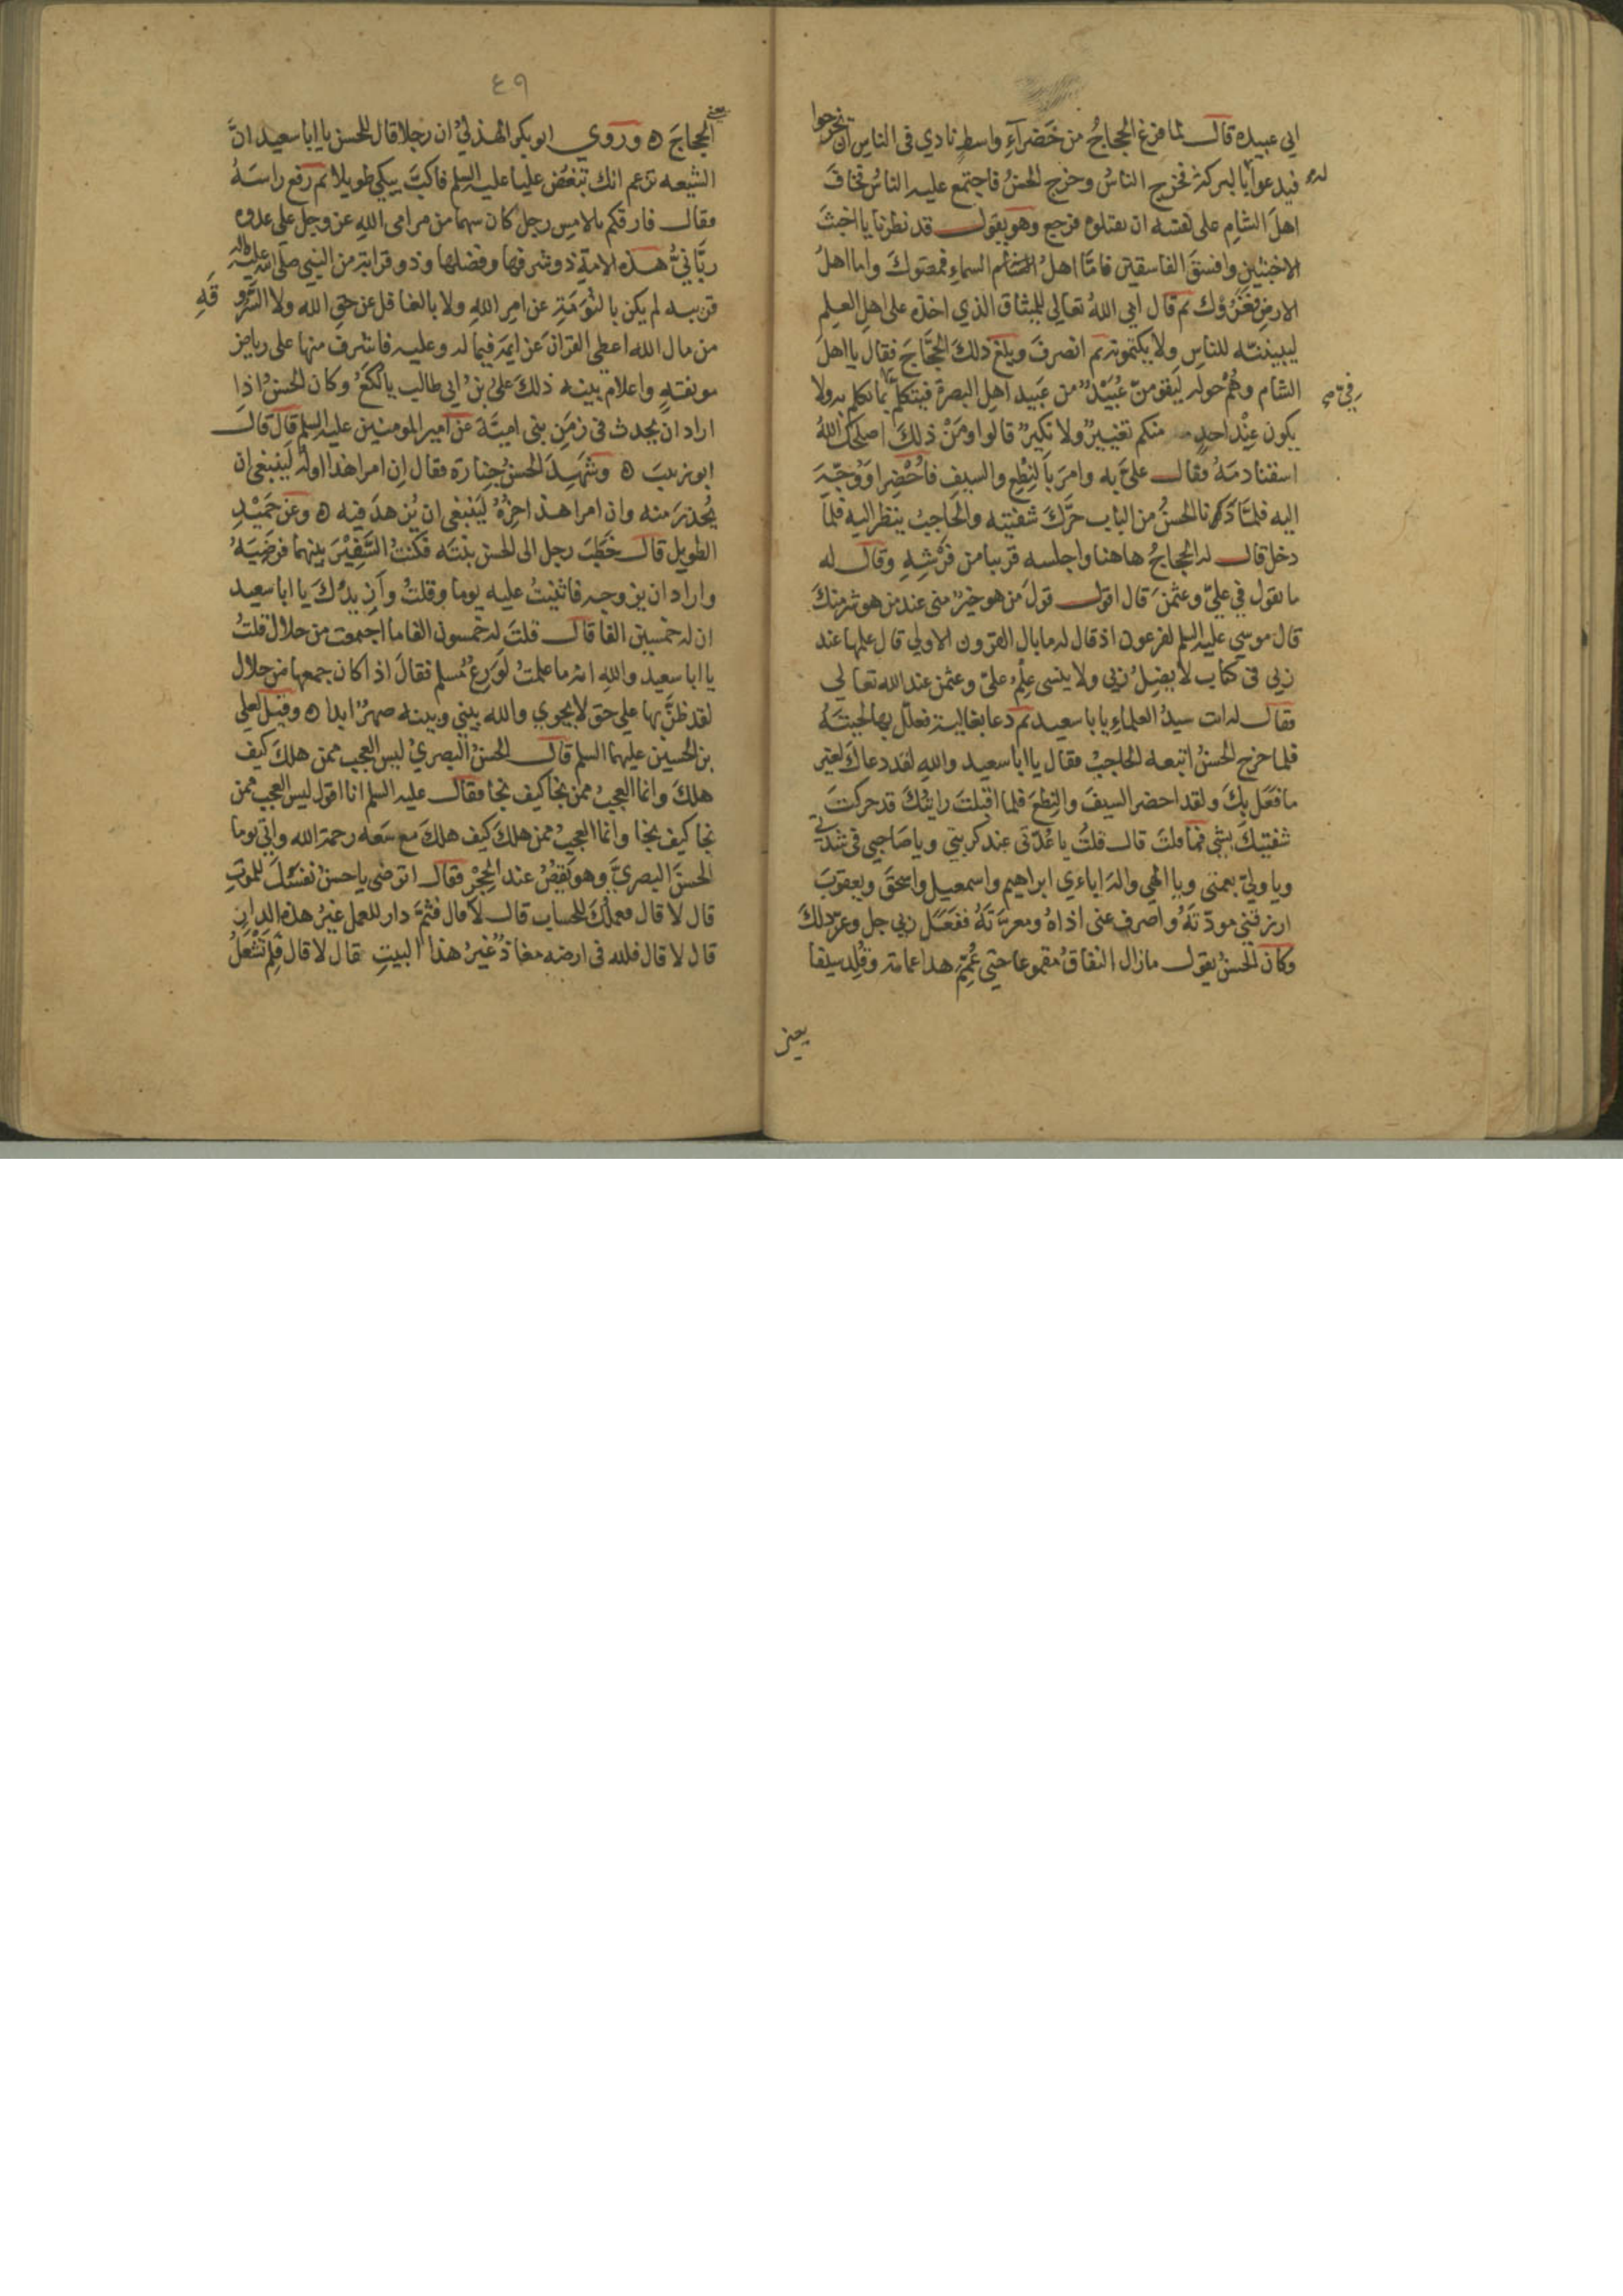 ابي عبيده قال لما فرغ الحجاج من خضرآء واسط نادي في الناس ان يخرجوا
فيدعوا له بالبركة فخرج الناس وخرج الحسن فاجتمع عليه الناس فخاف
اهل الشام على نفسه ان يقتلوه فرجع وهو يقول قد نظرنا يا اخبث
الاخبثين وافسق الفاسقين فامّا اهل السماء فمقتوك واما اهل
الارض فغرّوك ثم قال ابي الله تعالي للميثاق الذي اخذه على اهل العلم
ليبيننّه للناس ولا يكتمونه ثم انصرف وبلغ ذلك الحجّاج فقال يا اهل
الشام وهم حوله ليقومنّ عُبَيْدٌ من عَبيد اهل البصرة فيتكلّم بما تكلم به ولا
يكون عند احدٍ منكم تغييرٌ ولا نكيرٌ قالوا ومَنْ ذلك اصلحك الله
اسقنا دمَهُ فقال عليّ به وامر بالنِطْع والسيف فاُحْضِرا وَوُجّهَ
اليه فلمّا دنا الحسنُ من الباب حرّك شفتيه والحاجبُ ينظر اليه فلمّا
دخل قال له الحجاجُ هاهنا واجلسه قريبا من فُرُشِهِ وقال له
ما يقول في عليّ وعثمن قال اقول قولَ من هو خيرٌ منى عند من هو شرٌ منك
قال موسي عليه السلم لفرعون اذ قال له ما بال القرون الاولي قال علمها عند
ربي في كتاب لا يضلُ ربي ولا ينسى علمُ عليّ وعثمن عند الله تعالي
فقال له انت سيدُ العلماءِ يا با سعيد ثم دعا بغالية فعلّل بها لحيتَهُ
فلما خرج الحسنُ اتبعه الحاجبُ فقال يا ابا سعيد والله لقد دعاك لغير
ما فعَل بِكَ ولقد احضر السيفَ والنِطعَ فلما اقبلتَ رايتك قد حركتَ
شفتيك بشي فما قلتَ قال قلتُ يا عُدّتى عند كربتي ويا صَاحبى في شدتي
ويا وليّ نعمتى ويا الهي واله ابآءي ابراهيم واسمعيل واسحق ويعقوب
ارزقني مودّتَهُ واصرف عنى اذاهُ ومعرّتَهُ ففعَل ربي جل وعزّ ذلك
وكان الحسنُ يقول ما زال النفاقُ مقموعا حتى عُمِّمَ هذا عمامة وقُلِّد سيفا
يعنى
٤٩
يعني الحجاجَ ه وروي ابو بكر الهذليُ ان رجلا قال للحسن يا ابا سعيد انّ
الشيعه تزعم انك تبغض عليا عليه السلم فاكبّ يبكي طويلا ثم رفع راسَهُ
فقال فارقكم بالامس رجلٌ كان سهما من مرامى الله عز وجل على عدوه
ربّانيُّ هذه الامة ذو شرفها وفضلها وذو قرابة من النبي صلى الله عليه واله
قريبه لم يكن بالنُّوَمَةِ عن امر الله ولا بالغافل عن حق الله ولا السَّروقة
من مال الله اعطى القرانَ عزايمَه فيما له وعليه فاشرف منها على رياض
مونقةٍ واعلام بينه ذلك عليُ بنُ ابي طالب يا لكَعُ وكان الحسنُ اذا
اراد ان يحدث في زمَن بنى اميّة عن امير المومنين عليه السلم قال قال
ابو زينبَ ه وشهِدَ الحسنُ جِنازة فقال اِن امرا هذا اولُه لَينبغى ان
يُحذرَ منه وان امرا هذا اخِرُهُ لَينبغى ان يُزهدَ فيه ه وعن حُمَيْدٍ
الطويل قال خطبَ رجل الى الحسن بنتَه فكنتُ السَّفِيْرَ بينهما فرضِيَهُ
واراد ان يزوجه فاثنيتُ عليه يوما وقلتُ وأزيدُك يا ابا سعيد
ان له خمسين الفا قال قلتَ له خمسون الفا ما اجتمعت من حلال قلتُ
يا ابا سعيد والله انه ما علمتُ لوَرِعٌ مُسلم فقال اذا كان جمعها من حلال
لقد ظنّ بها على حق لا يجري والله بيني وبينه صهرٌ ابدا ه وقيل لعلي
بن الحسين عليهما السلم قال الحسنُ البصريُ ليس العجب ممن هلك كيف
هلك وانما العجبُ ممن نجا كيف نجا فقال عليه السلم انا اقول ليس العجب ممن
نجا كيف نجا وانما العجبُ ممن هلك كيف هلك مع سَعه رحمة الله واتي يوما
الحسنَ البصريّ وهو يقصُ عند الحِجْرِ فقال اترضى يا حسنُ نفسَك للموتِ
قال لا قال فعملك للحساب قال لا قال فثمّ دار للعمل غيرُ هذه الدارِ
قال لا قال فلله في ارضه معاذٌ غيرُ هذا البيتِ قال لا قال فَلِمَ تَشْغَلُ